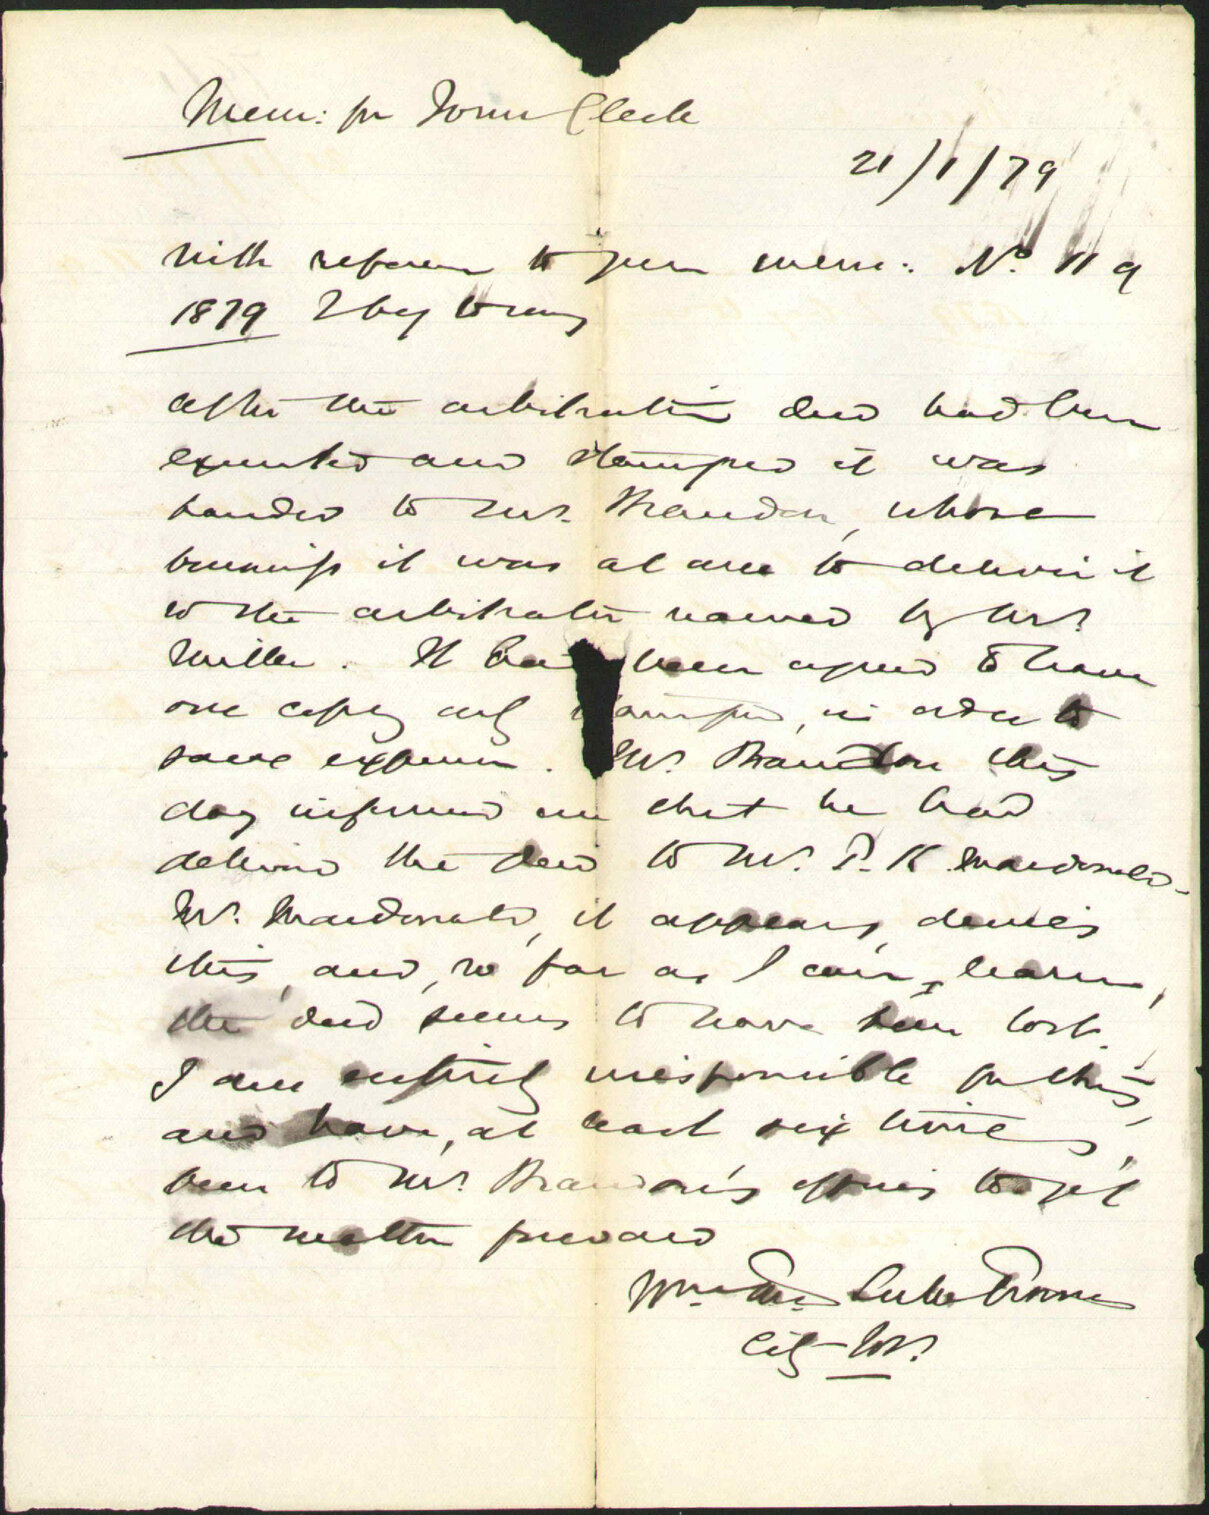 Mem: for Town Clerk
21/1/79
With reference to your mem: No. 119
1879 I beg to say
after the arbitration deed had been
executed and stamped it was
handed to Mr. Brandon, whose
business it was at once to deliver it
to the arbitrator named by Mr.
Miller. It had been agreed to have
one copy only stamped, in order to
save expense. Mr. Brandon this
day informed me that he had
delivered the deed to Mr. T. K. Macdonald.
Mr. Macdonald, it appears, denies
this, and, so far as I can learn,
the deed seems to have been lost.
I am entirely irresponsible for this,
and have, at least six times,
been to Mr. Brandon's offices to get
the matter forward
Wm.
City